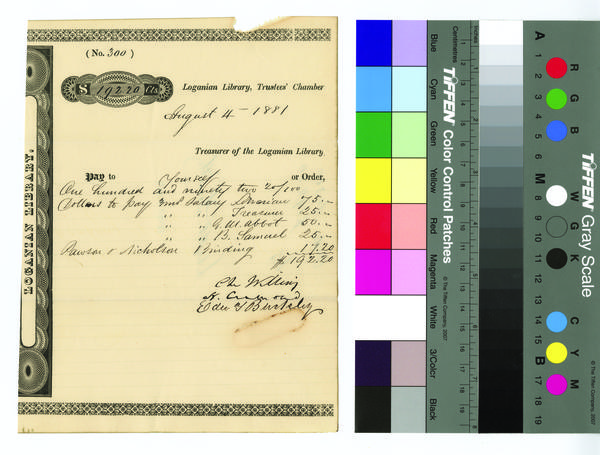 (No. 300)
$ 192.20 Cts.
Loganian Library, Trustees' Chamber
August 4 - 1881
Treasurer of the Loganian Library,
Pay to Yourself or Order,
One hundred and ninety two 20/100
Dollars to pay Salary Librarian 75.--
" " Treasurer 25.--
" " G. M. Abbot 50.--
" " B. Samuel 25.--
Pawson & Nicholson Binding 17.20
$192.20
LOGANIAN LIBRARY.
Centimetres
Inches
Blue
Cyan
Green
Yellow
Red
Magenta
White
3/Color
Black
TIFFEN Color Control Patches
© The Tiffen Company, 2007
TIFFEN Gray Scale
© The Tiffen Company, 2007
A
1
2
3
4
5
6
M
8
9
10
11
12
13
14
15
B
17
18
19
R
G
B
W
G
K
C
Y
M